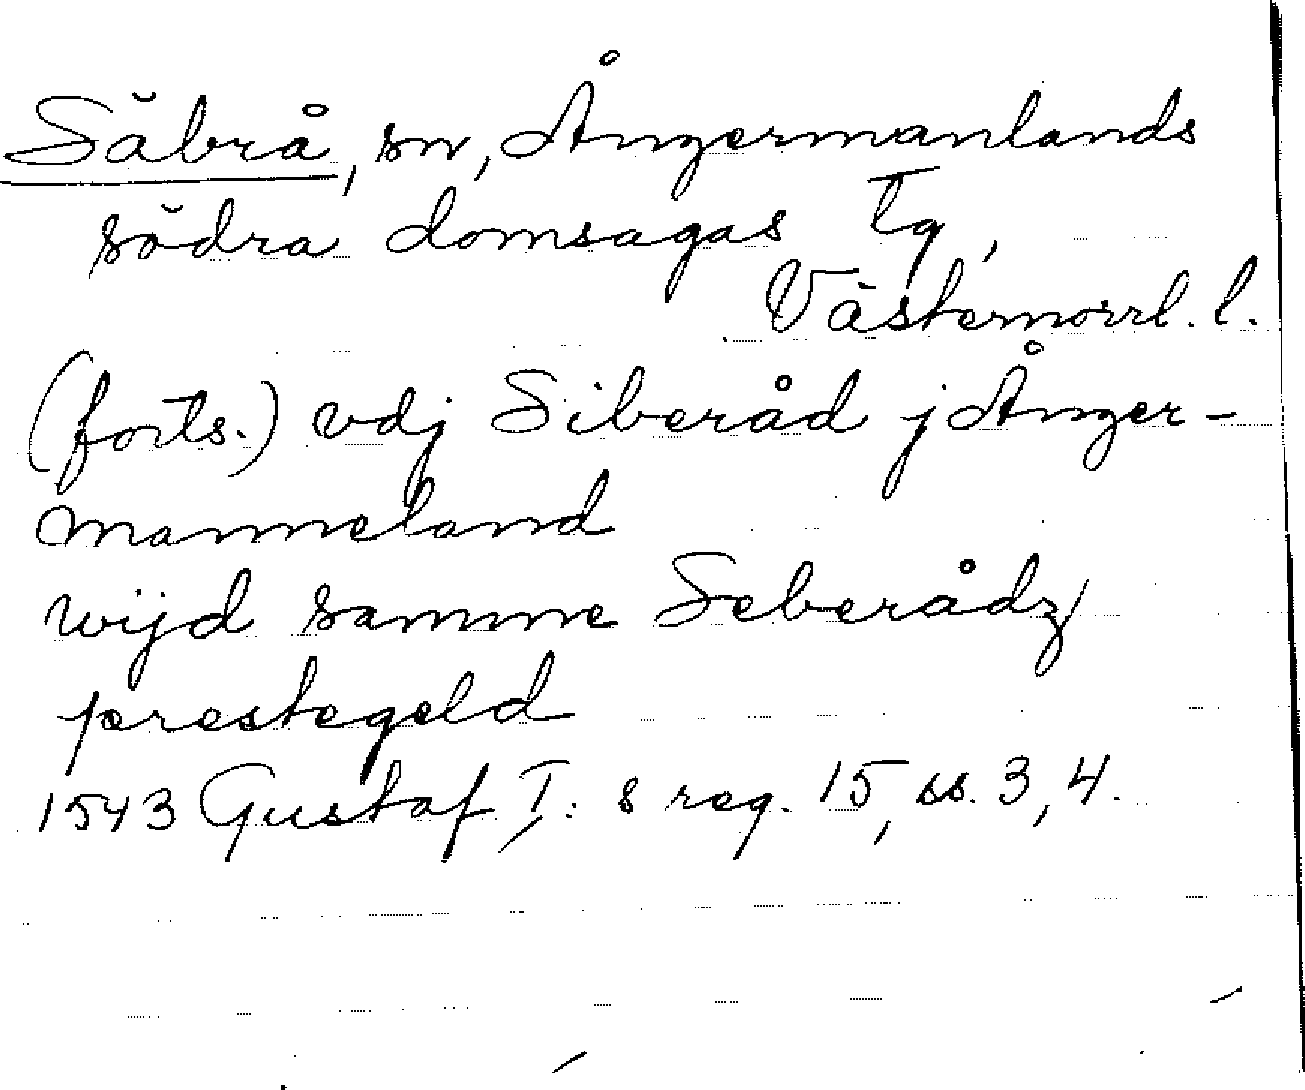 Säbrå, sn, Ångermanlands
södra domsagas tg,
Västernorrl. l.
(forts.) vdj Siberåd j Ånger-
manneland
wijd samme Seberådz
prestegeld
1543 Gustaf I:s reg. 15, ss. 3, 4.